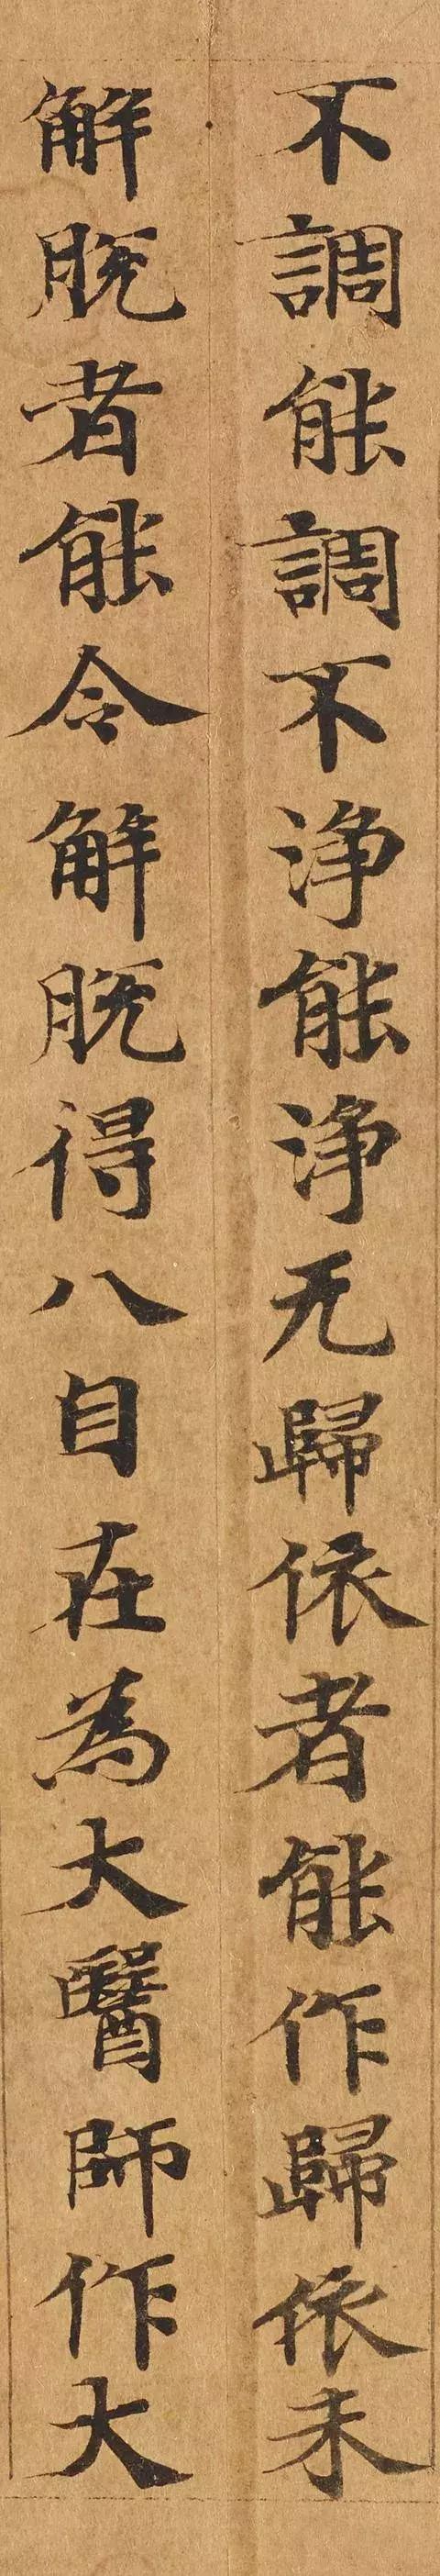 不調能調不淨能淨无歸依者能作歸依未
解脫者能令解脫得八自在為大醫師作大